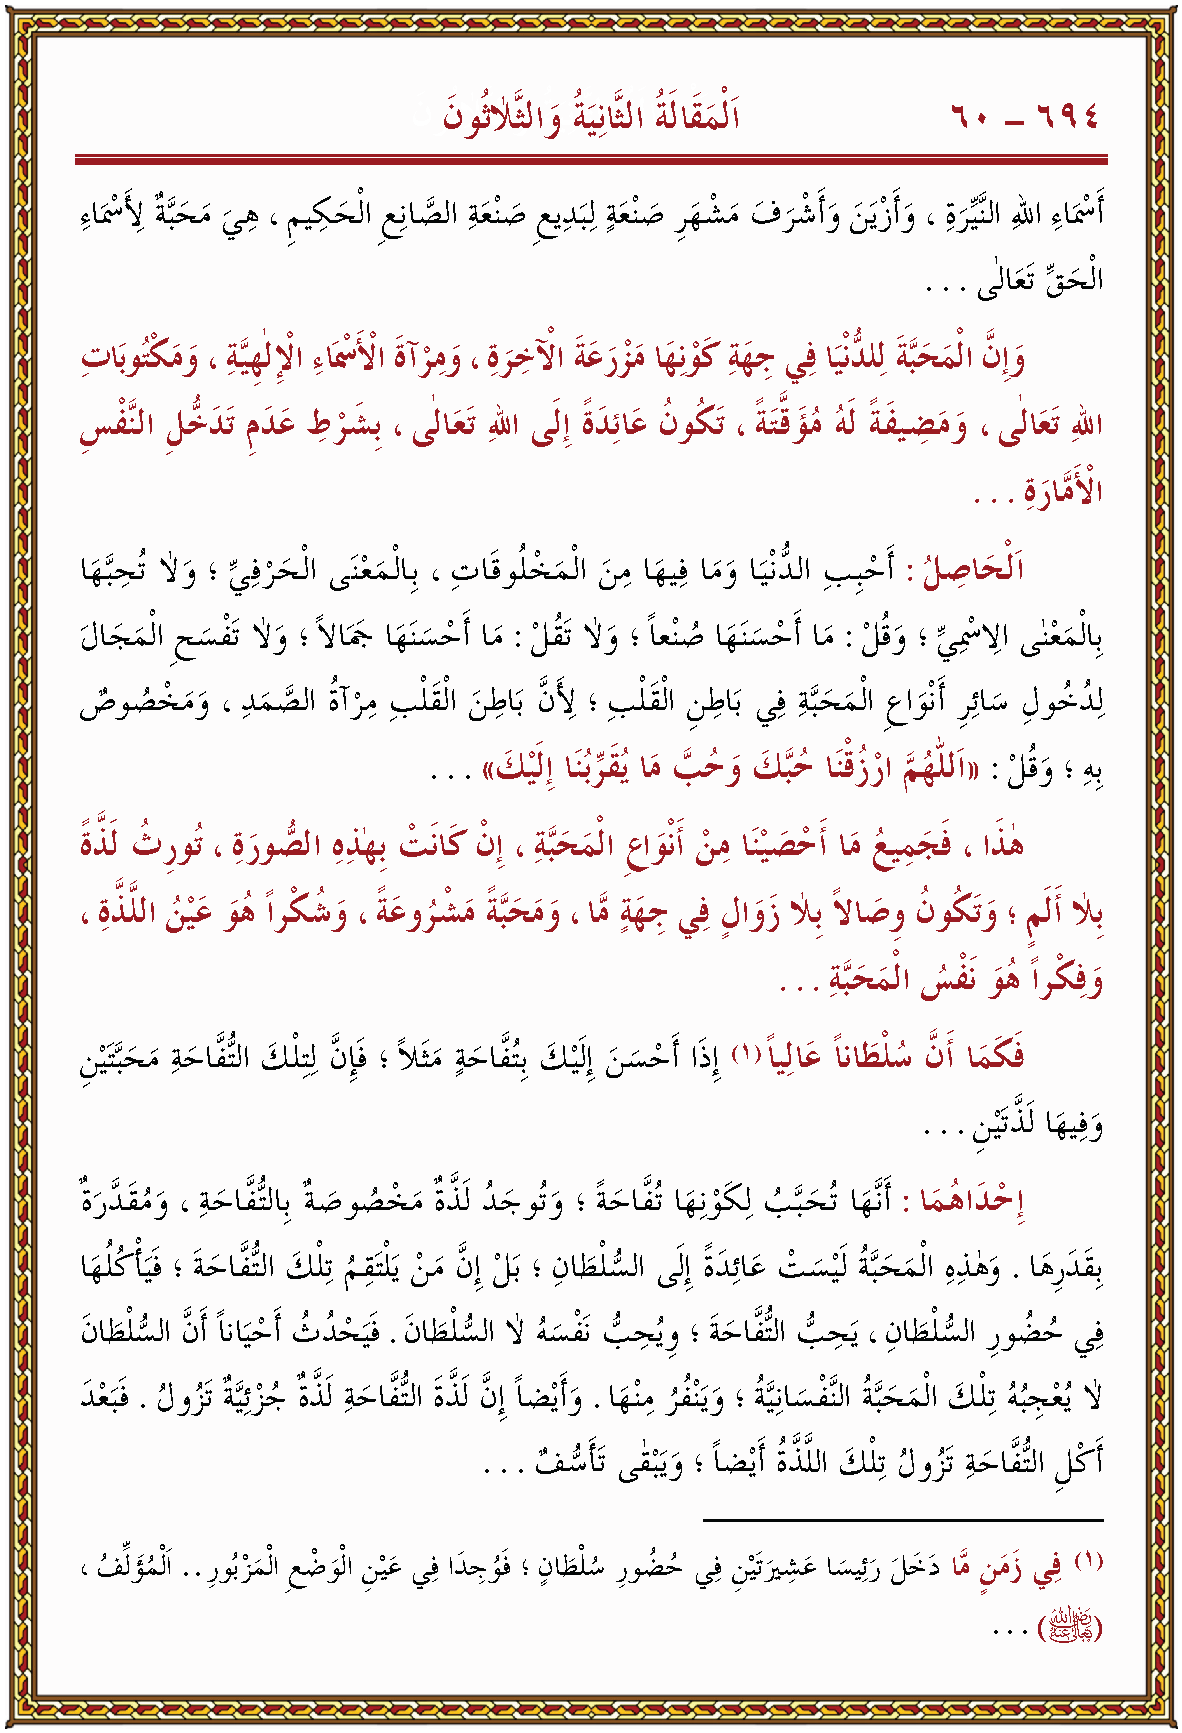 ٦٩٤ – ٦٠ اَلْمَقَالَةُ الثَّانِيَةُ وَالثَّلاٰثُونَ
أَسْمَاءِ اللهِ النَّيِّرَةِ ، وَأَزْيَنَ وَأَشْرَفَ مَشْهَرِ صَنْعَةٍ لِبَدِيعِ صَنْعَةِ الصَّانِعِ الْحَكِيمِ ، هِيَ مَحَبَّةٌ لِأَسْمَاءِ
الْحَقِّ تَعَالٰى . . .
وَإِنَّ الْمَحَبَّةَ لِلدُّنْيَا فِي جِهَةِ كَوْنِهَا مَزْرَعَةَ الْآخِرَةِ ، وَمِرْآةَ الْأَسْمَاءِ الْإِلٰهِيَّةِ ، وَمَكْتُوبَاتِ
اللهِ تَعَالٰى ، وَمَضِيفَةً لَهُ مُؤَقَّتَةً ، تَكُونُ عَائِدَةً إِلَى اللهِ تَعَالٰى ، بِشَرْطِ عَدَمِ تَدَخُّلِ النَّفْسِ
الْأَمَّارَةِ . . .
اَلْحَاصِلُ : أَحْبِبِ الدُّنْيَا وَمَا فِيهَا مِنَ الْمَخْلُوقَاتِ ، بِالْمَعْنَى الْحَرْفِيِّ ؛ وَلاٰ تُحِبَّهَا
بِالْمَعْنٰى الِاسْمِيِّ ؛ وَقُلْ : مَا أَحْسَنَهَا صُنْعاً ؛ وَلاٰ تَقُلْ : مَا أَحْسَنَهَا جَمَالاً ؛ وَلاٰ تَفْسَحِ الْمَجَالَ
لِدُخُولِ سَائِرِ أَنْوَاعِ الْمَحَبَّةِ فِي بَاطِنِ الْقَلْبِ ؛ لِأَنَّ بَاطِنَ الْقَلْبِ مِرْآةُ الصَّمَدِ ، وَمَخْصُوصٌ
بِهِ ؛ وَقُلْ : «اَللّٰهُمَّ ارْزُقْنَا حُبَّكَ وَحُبَّ مَا يُقَرِّبُنَا إِلَيْكَ» . . .
هٰذَا ، فَجَمِيعُ مَا أَحْصَيْنَا مِنْ أَنْوَاعِ الْمَحَبَّةِ ، إِنْ كَانَتْ بِهٰذِهِ الصُّورَةِ ، تُورِثُ لَذَّةً
بِلاٰ أَلَمٍ ؛ وَتَكُونُ وِصَالاً بِلاٰ زَوَالٍ فِي جِهَةٍ مَّا ، وَمَحَبَّةً مَشْرُوعَةً ، وَشُكْراً هُوَ عَيْنُ اللَّذَّةِ ،
وَفِكْراً هُوَ نَفْسُ الْمَحَبَّةِ . . .
فَكَمَا أَنَّ سُلْطَاناً عَالِياً (١) إِذَا أَحْسَنَ إِلَيْكَ بِتُفَّاحَةٍ مَثَلاً ؛ فَإِنَّ لِتِلْكَ التُّفَّاحَةِ مَحَبَّتَيْنِ
وَفِيهَا لَذَّتَيْنِ . . .
إِحْدَاهُمَا : أَنَّهَا تُحَبُّ لِكَوْنِهَا تُفَّاحَةً ؛ وَتُوجَدُ لَذَّةٌ مَخْصُوصَةٌ بِالتُّفَّاحَةِ ، وَمُقَدَّرَةٌ
بِقَدَرِهَا . وَهٰذِهِ الْمَحَبَّةُ لَيْسَتْ عَائِدَةً إِلَى السُّلْطَانِ ؛ بَلْ إِنَّ مَنْ يَلْتَقِمُ تِلْكَ التُّفَّاحَةَ ؛ فَيَأْكُلُهَا
فِي حُضُورِ السُّلْطَانِ ، يَحِبُّ التُّفَّاحَةَ ؛ وِيُحِبُّ نَفْسَهُ لاٰ السُّلْطَانَ . فَيَحْدُثُ أَحْيَاناً أَنَّ السُّلْطَانَ
لاٰ يُعْجِبُهُ تِلْكَ الْمَحَبَّةُ النَّفْسَانِيَّةُ ؛ وَيَنْفُرُ مِنْهَا . وَأَيْضاً إِنَّ لَذَّةَ التُّفَّاحَةِ لَذَّةٌ جُزْئِيَّةٌ تَزُولُ . فَبَعْدَ
أَكْلِ التُّفَّاحَةِ تَزُولُ تِلْكَ اللَّذَّةُ أَيْضاً ؛ وَيَبْقٰى تَأَسُّفٌ . . .
(١) فِي زَمَنٍ مَّا دَخَلَ رَئِيسَا عَشِيرَتَيْنِ فِي حُضُورِ سُلْطَانٍ ؛ فَوُجِدَا فِي عَيْنِ الْوَضْعِ الْمَزْبُورِ . . اَلْمُؤَلِّفُ ،
(رَضِيَ اللهُ تَعَالَى عَنْهُ) . . .